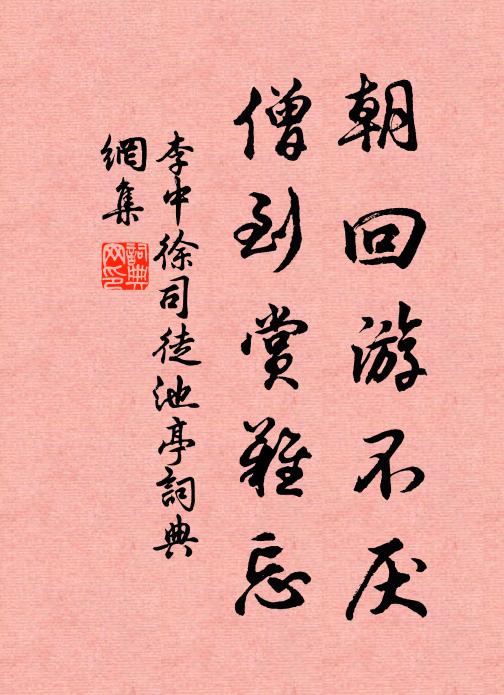 朝回游不厌
僧到赏难忘
李中徐司徒池亭詞典
網集
詞典
网印